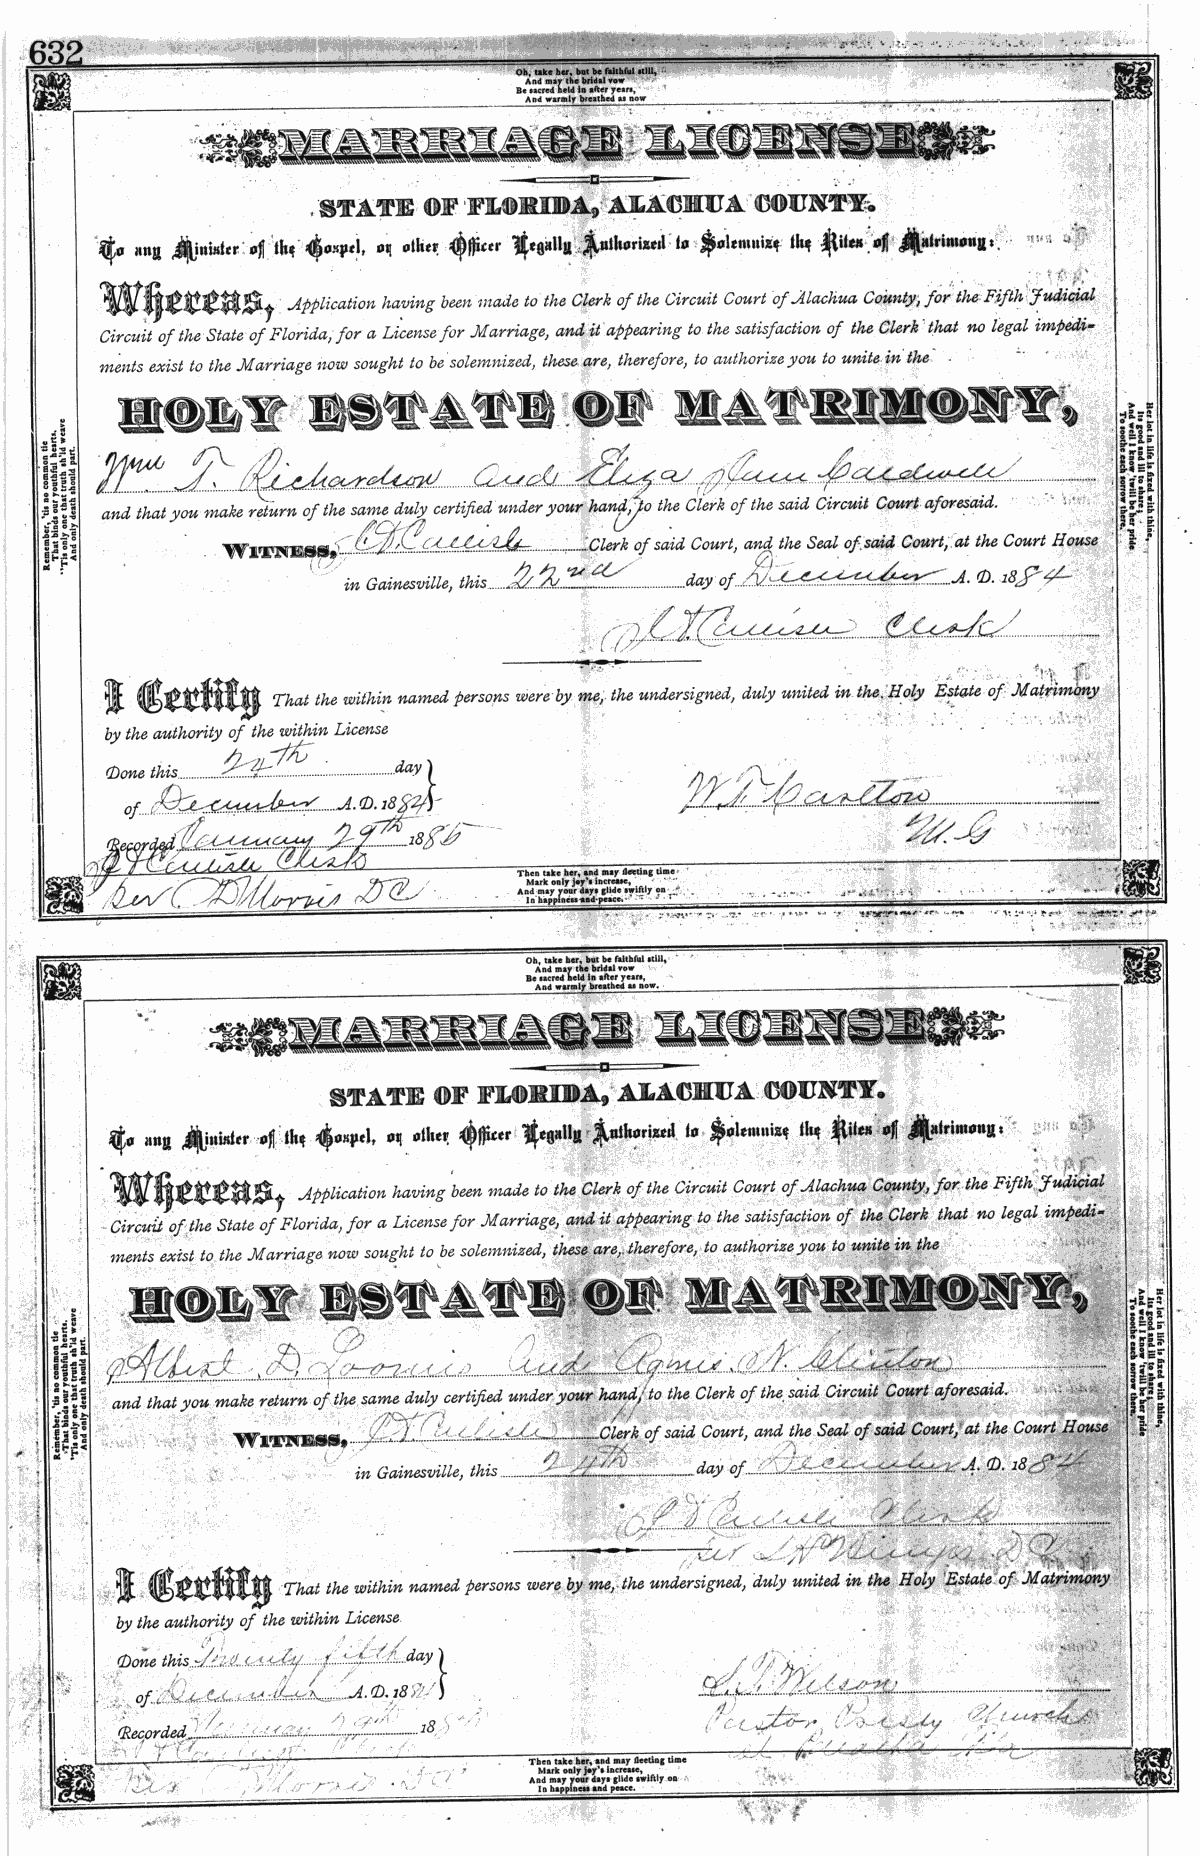 632
Oh, take her, but be faithful still,
And may the bridal vow
Be sacred held in after years,
And warmly breathed as now
MARRIAGE LICENSE
STATE OF FLORIDA, ALACHUA COUNTY.
To any Minister of the Gospel, or other Officer Legally Authorized to Solemnize the Rites of Matrimony:
Whereas, Application having been made to the Clerk of the Circuit Court of Alachua County, for the Fifth Judicial
Circuit of the State of Florida, for a License for Marriage, and it appearing to the satisfaction of the Clerk that no legal impedi-
ments exist to the Marriage now sought to be solemnized, these are, therefore, to authorize you to unite in the
HOLY ESTATE OF MATRIMONY,
Wm. T. Richardson and Eliza Ann Caldwell
and that you make return of the same duly certified under your hand, to the Clerk of the said Circuit Court aforesaid.
WITNESS, Carlisle Clerk of said Court, and the Seal of said Court, at the Court House
in Gainesville, this 22nd day of December A. D. 1884
Carlisle Clerk
I Certify That the within named persons were by me, the undersigned, duly united in the Holy Estate of Matrimony
by the authority of the within License
Done this 24th day
of December A. D. 1884
W. T. Carlton
M. G
Recorded January 29th 1885
Carlisle Clerk
per Morris D C
Remember, 'tis no common tie
That binds our youthful hearts.
"Tis only one that truth sh'ld weave
And only death should part.
Her lot in life is fixed with thine,
Its good and ill to share;
And well I know 'twill be her pride
To soothe each sorrow there.
Then take her, and may fleeting time
Mark only joy's increase,
And may your days glide swiftly on
In happiness and peace.
Oh, take her, but be faithful still,
And may the bridal vow
Be sacred held in after years,
And warmly breathed as now.
MARRIAGE LICENSE
STATE OF FLORIDA, ALACHUA COUNTY.
To any Minister of the Gospel, or other Officer Legally Authorized to Solemnize the Rites of Matrimony:
Whereas, Application having been made to the Clerk of the Circuit Court of Alachua County, for the Fifth Judicial
Circuit of the State of Florida, for a License for Marriage, and it appearing to the satisfaction of the Clerk that no legal impedi-
ments exist to the Marriage now sought to be solemnized, these are, therefore, to authorize you to unite in the
HOLY ESTATE OF MATRIMONY,
Albert D. Loomis and Agnes N. Clinton
and that you make return of the same duly certified under your hand, to the Clerk of the said Circuit Court aforesaid.
WITNESS, Carlisle Clerk of said Court, and the Seal of said Court, at the Court House
in Gainesville, this 24th day of December A. D. 1884
Carlisle Clerk
per D C
I Certify That the within named persons were by me, the undersigned, duly united in the Holy Estate of Matrimony
by the authority of the within License
Done this Twenty fifth day
of December A. D. 1884
S. T. Wilson
Pastor Presby Church
at
Recorded January 29th 1885
per Morris D C
Remember, 'tis no common tie
That binds our youthful hearts.
"Tis only one that truth sh'ld weave
And only death should part.
Her lot in life is fixed with thine,
Its good and ill to share;
And well I know 'twill be her pride
To soothe each sorrow there.
Then take her, and may fleeting time
Mark only joy's increase,
And may your days glide swiftly on
In happiness and peace.